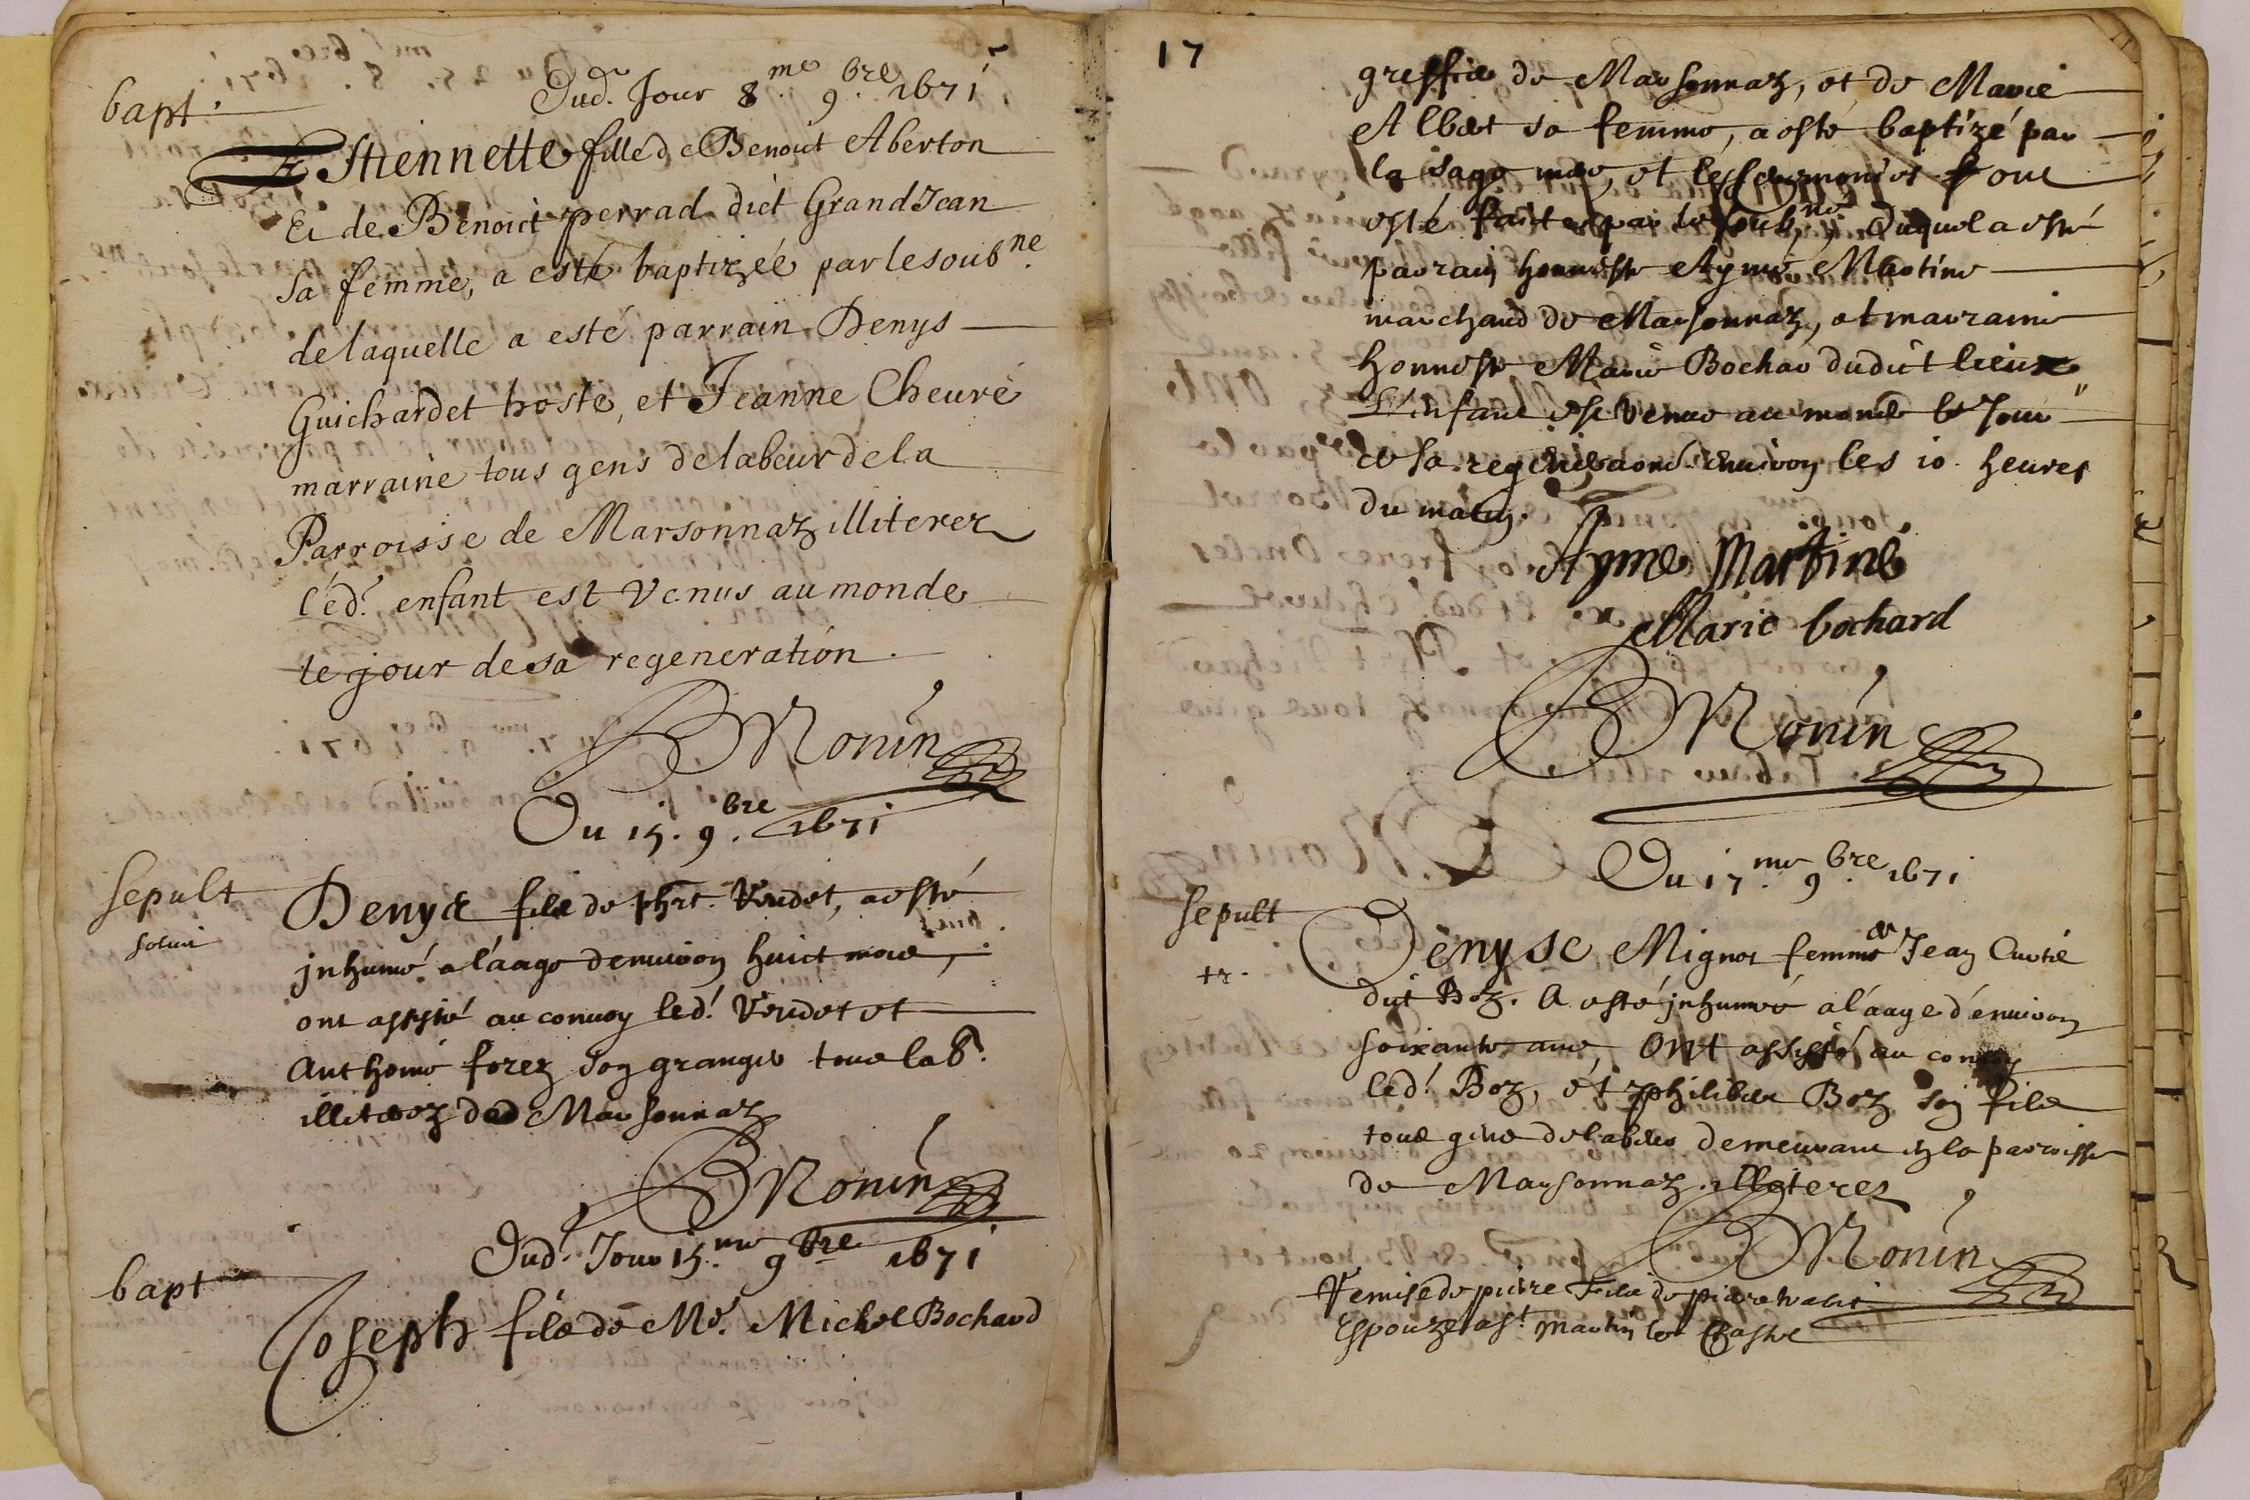 bapt.
Dud. Jour 8.me 9.bre 1671
Estiennette fille de Benoict Aberton
Et de Benoict perrad dict Grand Jean
sa femme, a esté baptizéé par le soub.ne
de laquelle a esté parrain Denys
Guichardet hoste, et Jeanne Cheuré
marraine tous gens de labeur de la
Parroisse de Marsonnaz illiterez
Léd. enfant est Venus au monde
le jour de sa regeneration.
BMonin
Du 15. 9.bre 1671
Sepult
Denys fils de phrt. Vendet, a esté
jnhumé a láage denuiron huict mois,
ont assisté au conuoy led. Vendet et
Anthoine forez son granger tous lab.
illiterez dud Marsonnaz
BMonin
Dud. Jour 15.me 9.bre 1671
bapt
Joseph fils de Me. Michel Bochard
17
greffier de Marsonnaz, et de Marie
Albert sa femme, a esté baptizé par
la sage mere, et les ceremonies ont
esté faictes par le soub.né, Duquel a esté
parrain honneste Aymé Martine
marchand de Marsonnaz, et marraine
honneste Marie Bochar dudict lieux
L'enfant est Venus au monde le Jour
de sa regeneraon. enuiron les 10. heures
du matin.
Ayme Martine
Marie bochard
BMonin
Du 17.me 9.bre 1671
Sepult
tr.
Denyse Mignot femme de Jean Curtié
dit Boz. A esté jnhumeé a láage d'enuiron
soixante ans, ONt assisté au conuoy
led. Boz, et philiber Boz son fils
tous gens de labeur demeurant en la parroisse
de Marsonnaz. illiterez
BMonin
Remise de pierre fils de pierre
Espouze a St. Martin le Chastel